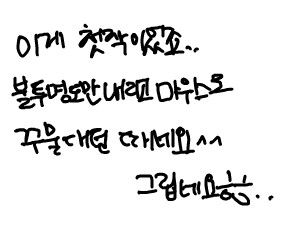 이게 첫작이었죠..
불투명도만 내리고 마우스로
꾸물대던 때네요^^
그립네요ㅠㅠ..